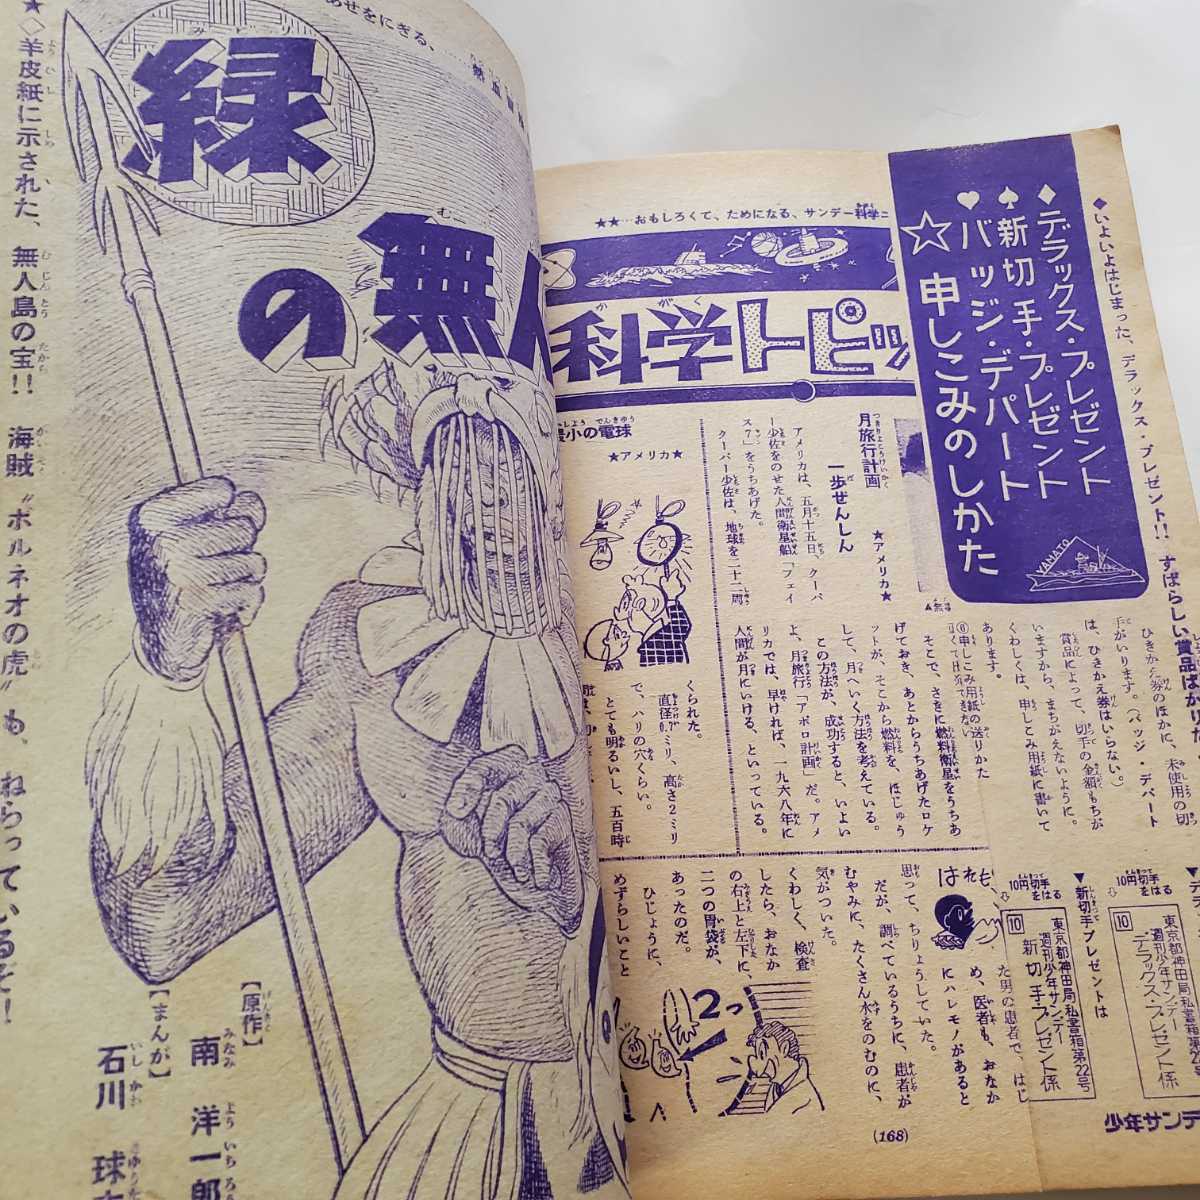 あせをにぎる、……
緑
の無人
みどり
む
★〉羊皮紙に示された、無人島の宝!! 海賊“ボルネオの虎”も、ねらっているぞ!
【原作】 南 洋一郎
【まんが】 石川 球
★★…おもしろくて、ためになる、サンデー科学ニ
科学
月旅行計画
一歩せんしん
★アメリカ★
アメリカは、五月十五日、クーパ
ー少佐をのせた人間衛星船「フェイ
ス7」をうちあげた。
クーパー少佐は、地球を二十二周
小の電球
★アメリカ★
そこで、さきに燃料衛星をうちあ
げておき、あとからうちあげたロケ
ットが、そこから燃料を、ほじゅう
して、月へいく方法を考えている。
この方法が、成功すると、いよい
よ、月旅行「アポロ計画」だ。アメ
リカでは、早ければ、一九六八年に
人間が月にいける、といっている。
くられた。
直径0.7ミリ、高さ2ミリ
で、ハリの穴くらい。
とても明るいし、五百時
はれも
た男の患者で、はじ
め、医者も、おなか
にハレモノがあると
思って、ちりょうしていた。
だが、調べているうちに、患者が
むやみに、たくさん水をのむのに、
気がついた。
くわしく、検査
したら、おなか
の右上と左下に、
二つの胃袋が、
あったのだ。
ひじょうに、
めずらしいこと
2つ
(168)
◆デラックス・プレゼント
♠新切手・プレゼント
♥バッジ・デパート
☆申しこみのしかた
YAMATO
◆いよいよはじまった、デラックス・プレゼント!! すばらしい賞品ばかりだ。
ひきかえ券のほかに、未使用の切
手がいります。(バッジ・デパート
は、ひきかえ券はいらない。)
賞品によって、切手の金額もちが
いますから、まちがえないように。
くわしくは、申しこみ用紙に書いて
あります。
⑥申しこみ用紙の送りかた
▼新切手プレゼントは
10円切手をはる
10
東京都神田局私書箱第22号
週刊少年サンデー
新切手・プレゼント係
10円切手をはる
10
東京都神田局私書箱第22号
週刊少年サンデー
デラックス・プレゼント係
少年サンデ